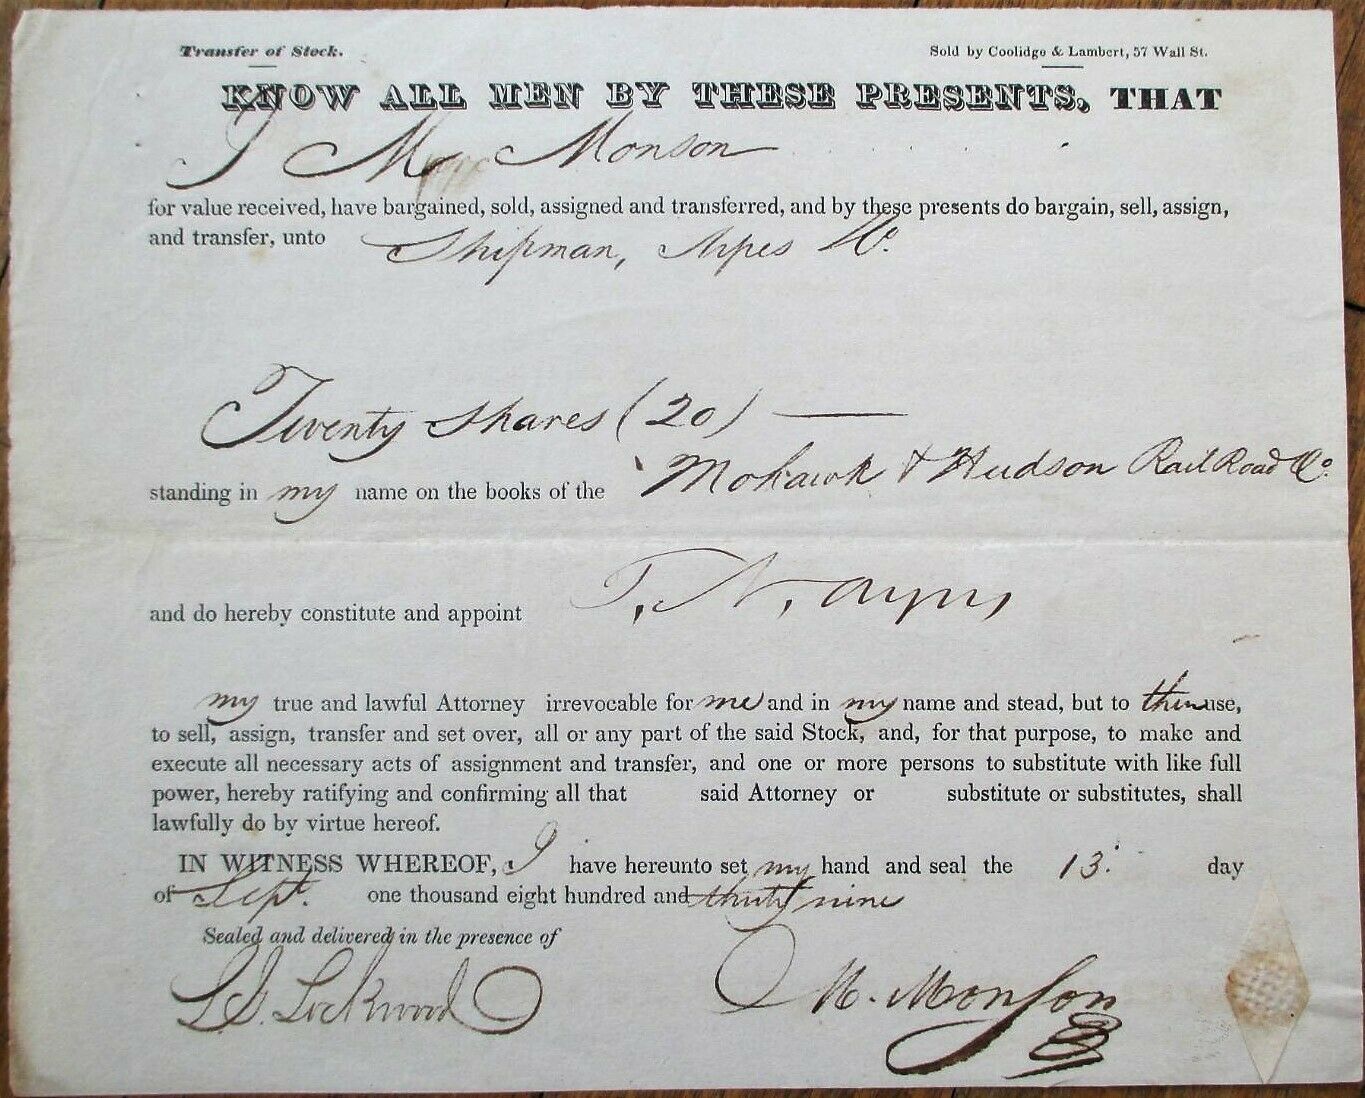 Transfer of Stock.
Sold by Coolidge & Lambert, 57 Wall St.
KNOW ALL MEN BY THESE PRESENTS, THAT
I M Monson
for value received, have bargained, sold, assigned and transferred, and by these presents do bargain, sell, assign,
and transfer, unto Shipman, Co.
Twenty Shares (20) —
standing in my name on the books of the Mohawk & Hudson Rail Road Co.
and do hereby constitute and appoint T. N. Ayres
my true and lawful Attorney irrevocable for me and in my name and stead, but to their use,
to sell, assign, transfer and set over, all or any part of the said Stock, and, for that purpose, to make and
execute all necessary acts of assignment and transfer, and one or more persons to substitute with like full
power, hereby ratifying and confirming all that said Attorney or substitute or substitutes, shall
lawfully do by virtue hereof.
IN WITNESS WHEREOF, I have hereunto set my hand and seal the 13. day
of Sept. one thousand eight hundred and thirty nine
Sealed and delivered in the presence of
Lockwood
M. Monson